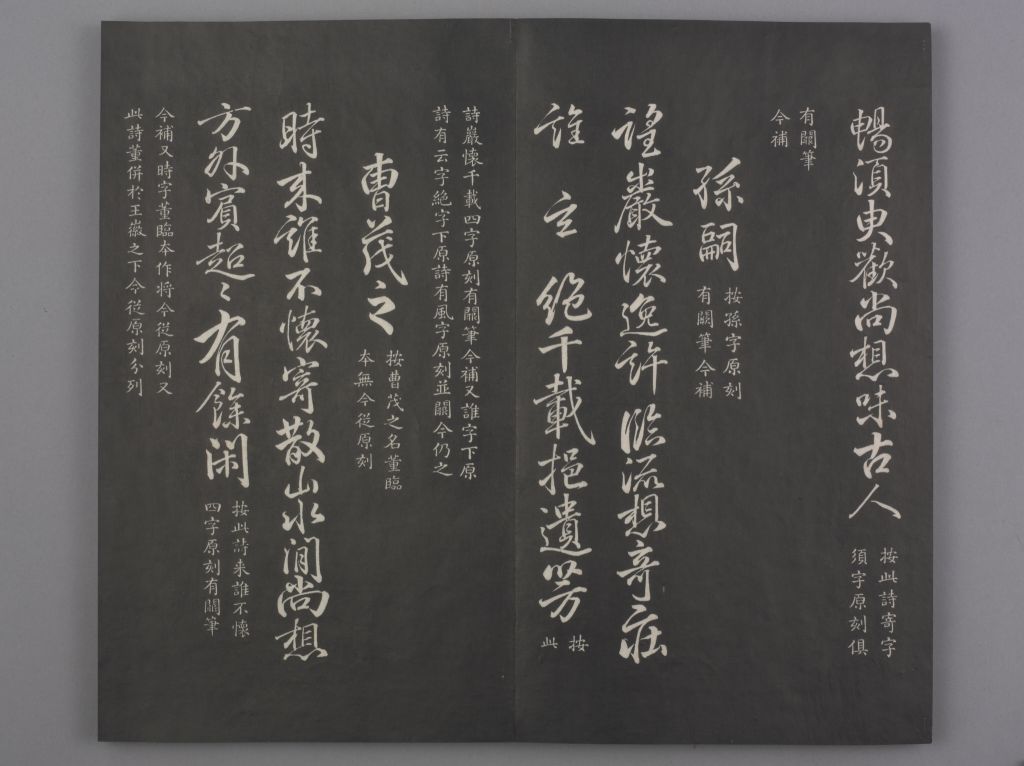 暢須臾歡尚想味古人
按此詩寄字
須字原刻俱
有闕筆
今補
孫嗣
按孫字原刻
有闕筆今補
望巖懷逸許臨流想奇莊
誰 云 絕千載挹遺芳
按
此
詩巖懷千載四字原刻有闕筆今補又誰字下原
詩有云字絕字下原詩有風字原刻並闕今仍之
曹茂之
按曹茂之名董臨
本無今從原刻
時來誰不懷寄散山水間尚想
方外賓超〻有餘閑
按此詩來誰不懷
四字原刻有闕筆
今補又時字董臨本作將今從原刻又
此詩董併於王徽之下今從原刻分列